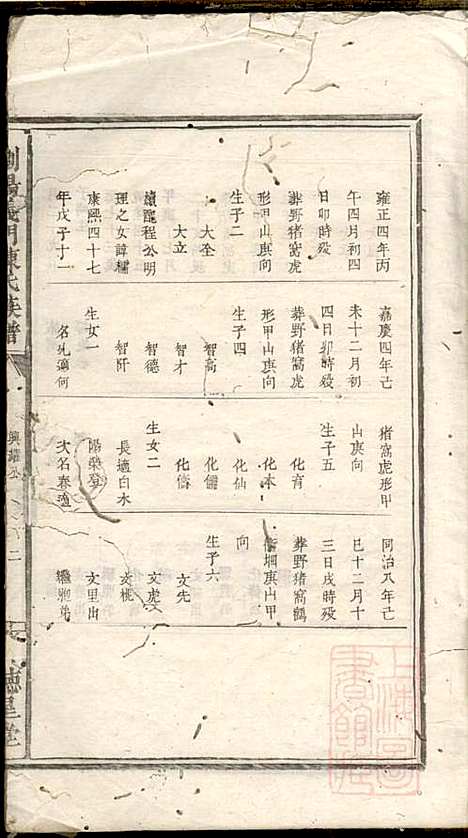 雍正四年丙
午四月初四
日卯時殁
葬野猪窩虎
形甲山庚向
生子二
大全
大立
續配程公明
理之女諱橘
康熙四十七
年戊子十一
嘉慶四年己
未十二月初
四日卯時殁
葬野猪窩虎
形甲山庚向
生子四
智高
智才
智德
智阡
生女一
名九適何
猪窩虎形甲
山庚向
生子五
化育
化本
化仙
化儒
化儔
生女二
長適白水
陽榮登
次名春適
同治八年己
巳十二月十
三日戌時殁
葬野猪窩鶴
庚山甲
向
生子六
文先
文虎
文梹
文里出
繼胞弟
瀏陽義門陳氏族譜
興
公
二
德星堂
上海圖
書館藏